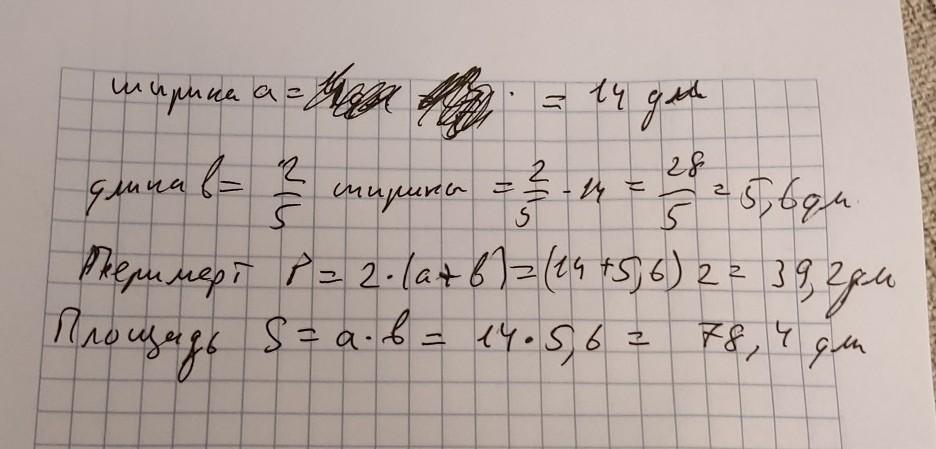 ширина a = = 14 дм
длина b = 2/5 ширины = 2/5 · 14 = 28/5 = 5,6 дм.
Перимерт P = 2 · (a + b) = (14 + 5,6) 2 = 39,2 дм
Площадь S = a · b = 14 · 5,6 = 78,4 дм